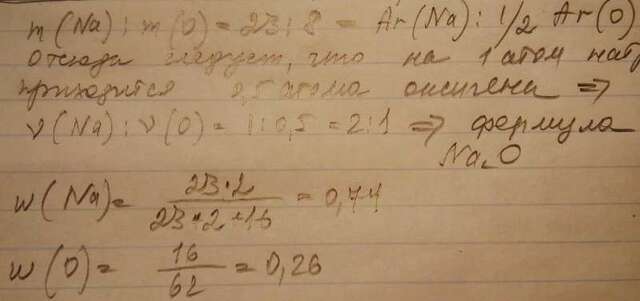 m(Na) : m(O) = 23 : 8 = Ar(Na) : 1/2 Ar(O)
Отсюда следует, что на 1 атом натр
приходится 0,5 атома оксигена ⇒
ν(Na) : ν(O) = 1 : 0,5 = 2 : 1 ⇒ формула
Na₂O
w(Na) = 23·2 / 23·2+16 = 0,74
w(O) = 16 / 62 = 0,26